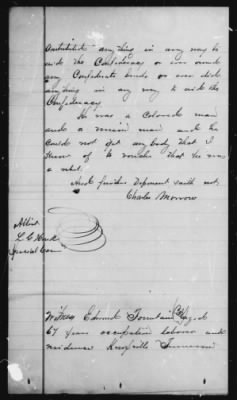 Contribute anything in any way to
aid the Confederacy or ever owned
any Confederate bonds or ever did
anything in any way to aid the
Confederacy
He was a Colored man
and a union man and he
could not get any body that I
know of to vouch that he was
a rebel.
And further Deponent saith not.
Charles Morrow
Attest
L C Houk
Special Com
Witness Edmund Fountain (Col) aged
67 years occupation laborer and
residence Knoxville Tennessee